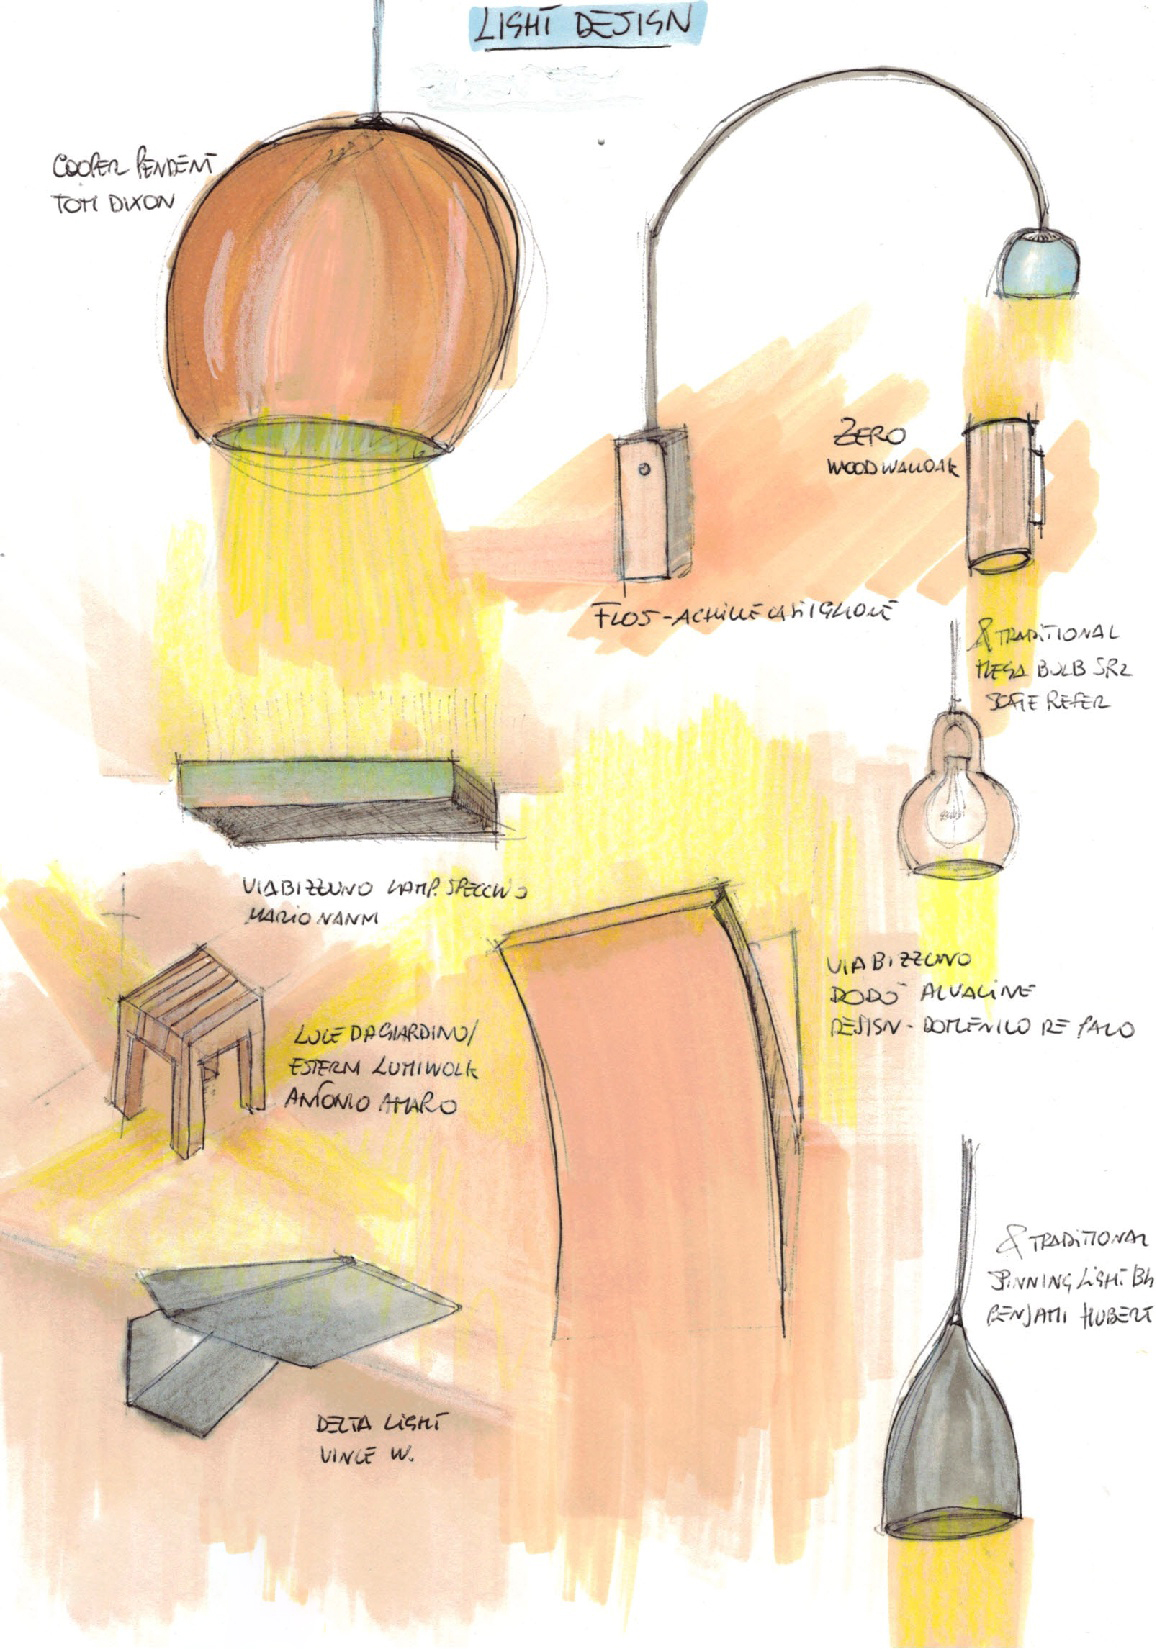 LIGHT DESIGN
COOPER PENDENT
TOM DIXON
ZERO
WOOD WALLOAK
FLOS - ACHILLE CASTIGLIONE
& TRADITIONAL
MEGA BULB SR2
SOFIE REFER
VIABIZZUNO LAMP. SPECCHIO
MARIO NANNI
VIABIZZUNO
DODÒ ALVALINE
DESIGN - DOMENICO DE PALO
LUCE DA GIARDINO/
ESTERNI LUMIWOLK
ANTONIO AMARO
& TRADITIONAL
SPINNING LIGHT BH
BENJAMI HUBERT
DELTA LIGHT
VINCE W.